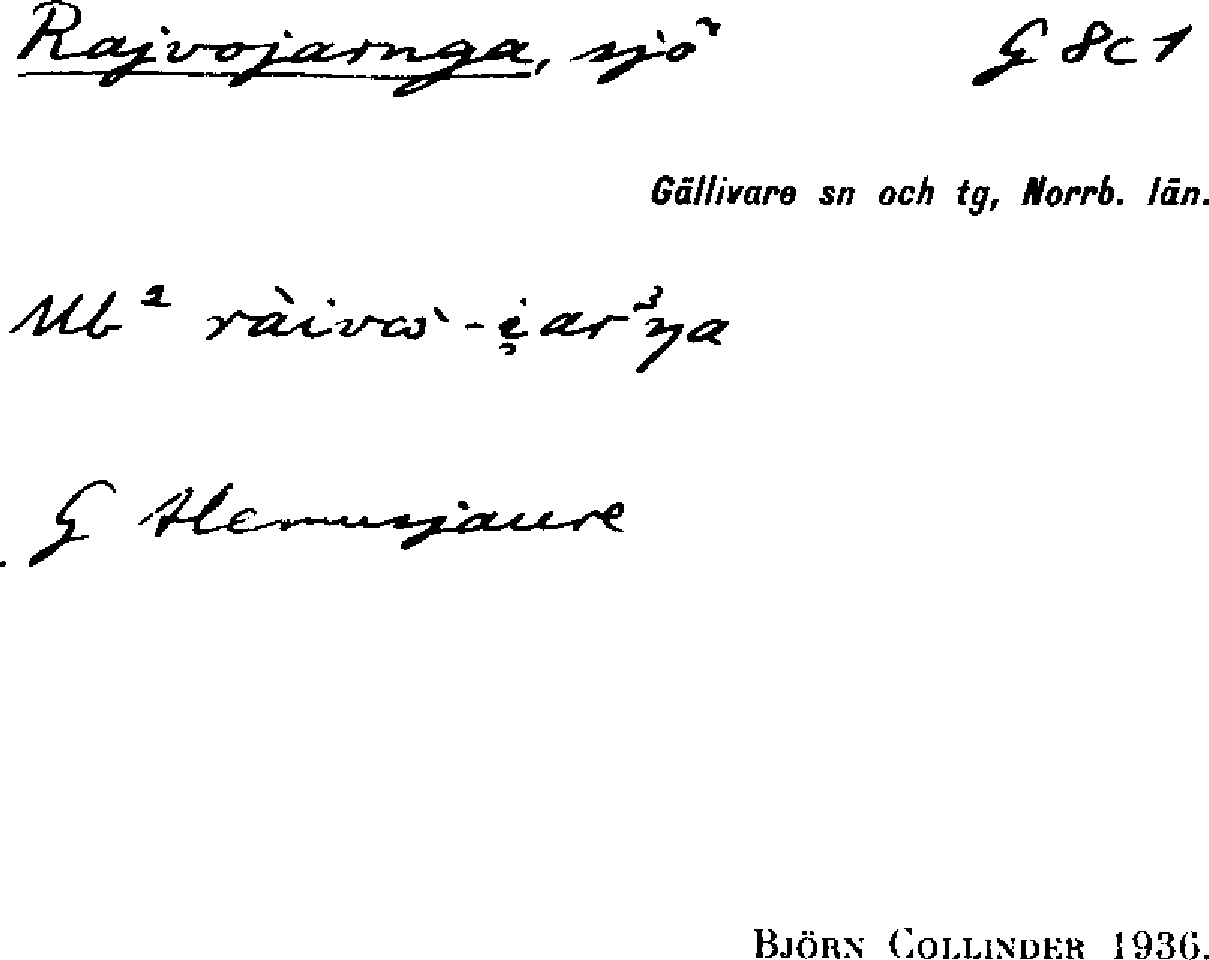 Rajvojarnga, sjö G 8c 1
Gällivare sn och tg, Norrb. län.
Ub² ràivὼ-i̯ar³ŋa
G Alemusjaure
BJÖRN COLLINDER 1936.